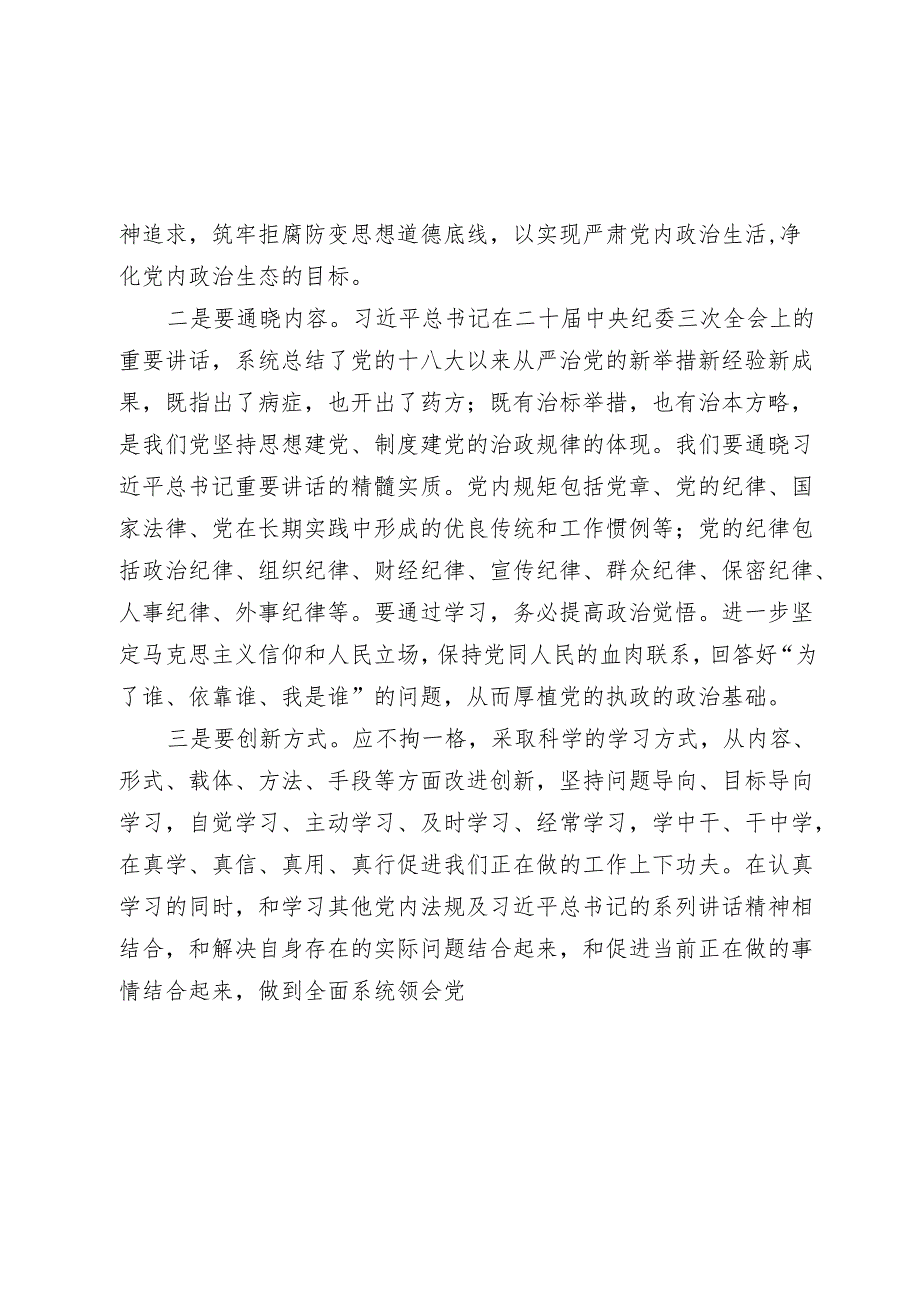 神追求，筑牢拒腐防变思想道德底线，以实现严肃党内政治生活,净
化党内政治生态的目标。
二是要通晓内容。习近平总书记在二十届中央纪委三次全会上的
重要讲话，系统总结了党的十八大以来从严治党的新举措新经验新成
果，既指出了病症，也开出了药方；既有治标举措，也有治本方略，
是我们党坚持思想建党、制度建党的治政规律的体现。我们要通晓习
近平总书记重要讲话的精髓实质。党内规矩包括党章、党的纪律、国
家法律、党在长期实践中形成的优良传统和工作惯例等；党的纪律包
括政治纪律、组织纪律、财经纪律、宣传纪律、群众纪律、保密纪律、
人事纪律、外事纪律等。要通过学习，务必提高政治觉悟。进一步坚
定马克思主义信仰和人民立场，保持党同人民的血肉联系，回答好“为
了谁、依靠谁、我是谁”的问题，从而厚植党的执政的政治基础。
三是要创新方式。应不拘一格，采取科学的学习方式，从内容、
形式、载体、方法、手段等方面改进创新，坚持问题导向、目标导向
学习，自觉学习、主动学习、及时学习、经常学习，学中干、干中学，
在真学、真信、真用、真行促进我们正在做的工作上下功夫。在认真
学习的同时，和学习其他党内法规及习近平总书记的系列讲话精神相
结合，和解决自身存在的实际问题结合起来，和促进当前正在做的事
情结合起来，做到全面系统领会党